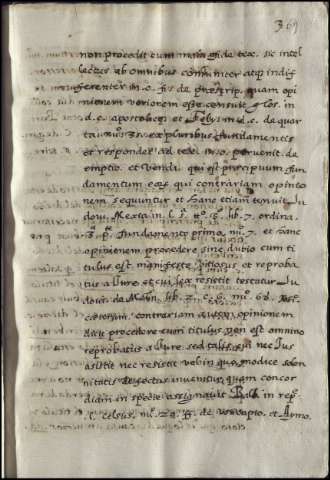 369
non procedit cum in de tex. sic intel
lectus ab omnibus communiter atq indif
ferenter in c. fi. de prescrip. quam opi
nionem veriorem esse consuit glos. in
d. c. apostolicę et felynus d. c. de quar
ta nu. 32. ex pluribus fundamentis
et respondet ad tex. in c. pervenit. de
emptio. et vendi. qui est precipuum fun
damentum eor. qui contrariam opinio
nem sequuntur et hanc etiam tenuit Lu
dovi. Mexia in l. lib. 7. ordina.
fundamento primo nu. 7. et hanc
opinionem procedere sine dubio cum ti
tulus est manifeste vitiosus et reproba
tus a iure et cui lex resistit testatur Lu
dovic. de Molin. lib. 2. c. 6. nu. 68.
contrariam vero opinionem
procedere cum titulus non est omnino
reprobatus a iure sed talis cui nec ius
asistit nec resistit vel in quo modice solen
nitatis defectus invenitur, quam concor
diam in specie assignavit Balb. in rep.
l. celsus, nu. 24. ff. de usucapio. et Arno.